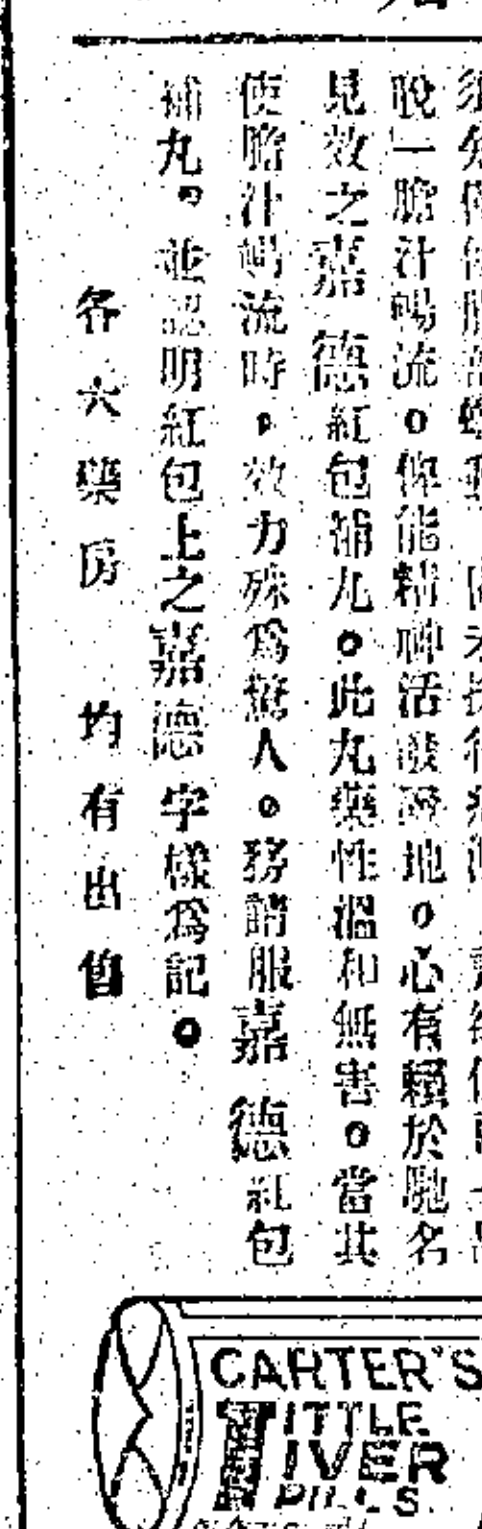 脫一膽汁暢流。俾能精神活潑潑地。心有賴於馳名
見效之嘉德紅包補丸。此丸藥性溫和無害。當其
使膽汁暢流時。效力殊為驚人。務請服嘉德紅包
補丸。並認明紅包上之嘉德字樣為記。
各大藥房 均有出售
CARTER'S
LITTLE
LIVER
PILLS